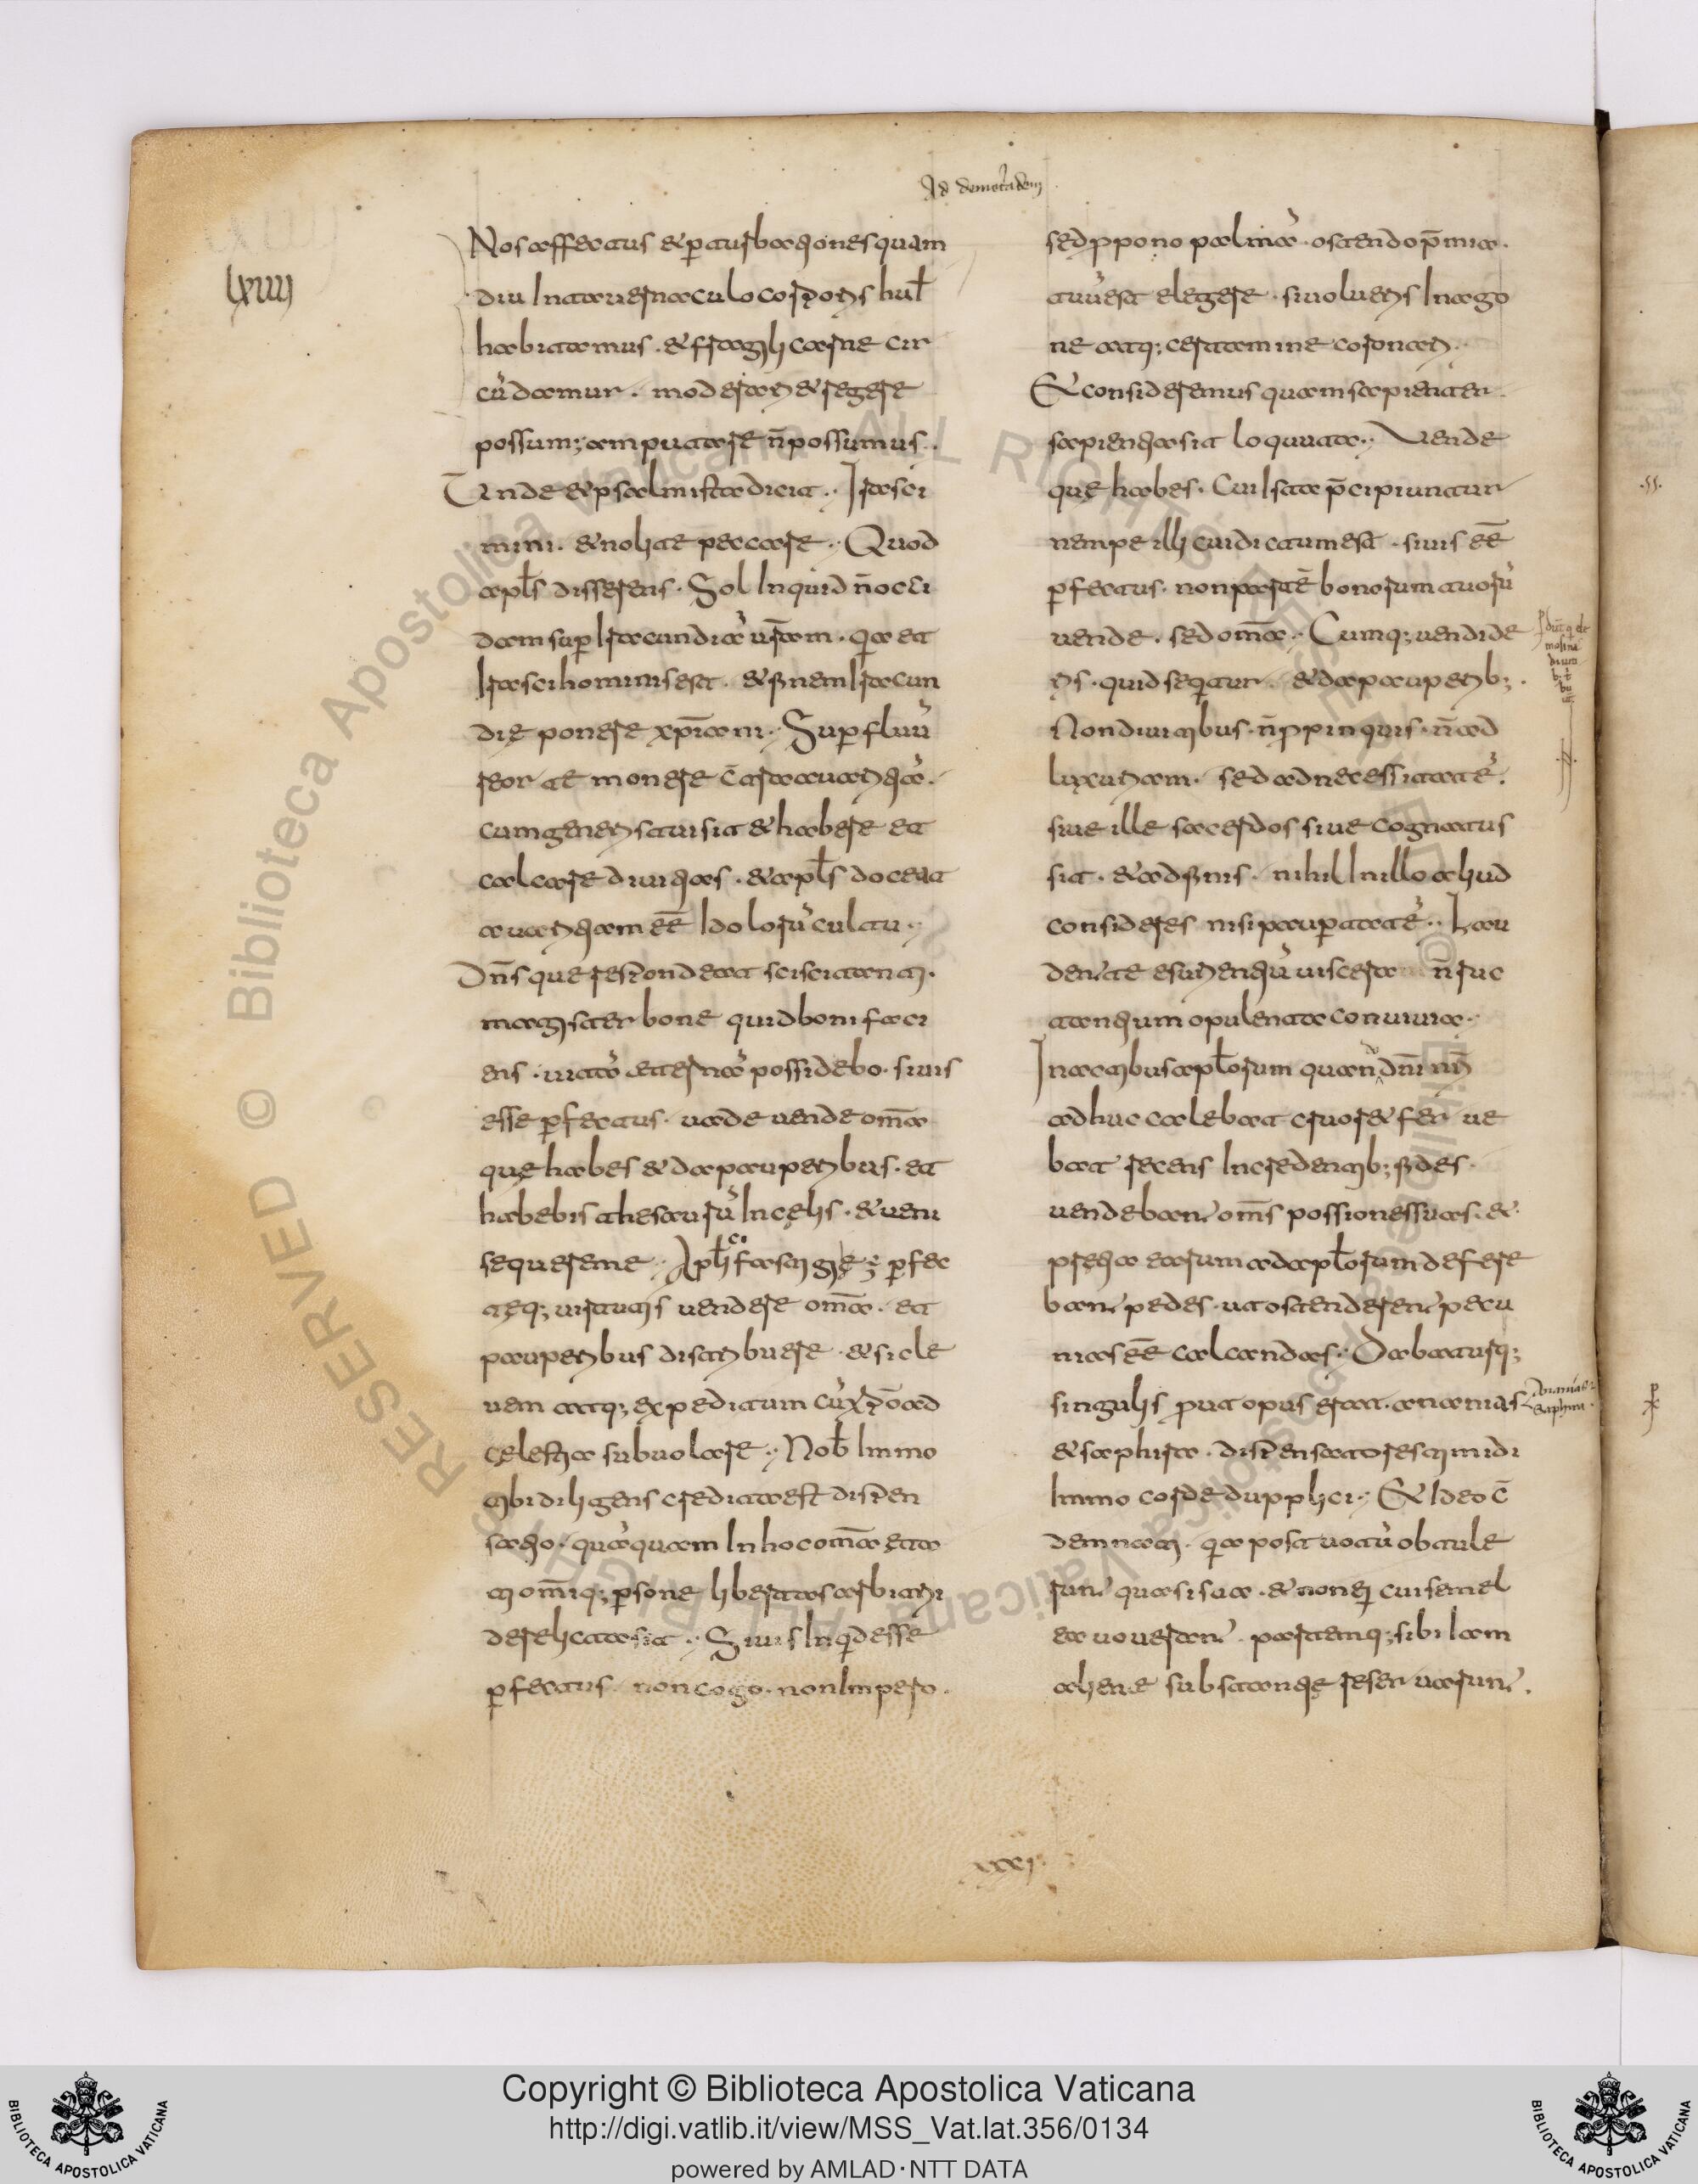 Ad demetriadem
lxiiii
Nos affectus & ꝑturbationes quam
diu In tabernaculo corporis hui'
habitamus . & fragili carne cir
cūdamur . moderari & regere
possum; amputare n̄ possumus .
Unde & psalmista dicit . Irasci
mini . & nolite peccare . Quod
apl's disserens . Sol Inquid n̄ occi
dam suꝑ Iracundiā ur̄am . qia et
Irasci hominis est . & finem Iracun
die ponere xp̄iani . Suꝑfluū
reor te monere c̄tra auaritiā .
cum generis tui sit & habere et
calcare diuitias . & apl's doceat
auaritiam eē Idolorū cultu .
Dn̄sque respondeat sciscitanti .
magister bone quid boni faci
ens . uitā eternā possidebo . si uis
esse ꝑfectus . uade uende om̄a
quę habes & da pauperibus . et
habebis thesaurū In cęlis . & ueni
sequere me . Apl'ico fastigię ꝑfec
teq; uirtutis uendere om̄a . et
pauperibus distribuere . & sic le
uem atq; expeditum cū xp̄o ad
cęlestia subuolare . Nob' Immo
tibi diligens credita est dispen
satio . quāquam In hoc om̄a ęta
ti om̄iq; ꝑsone libertas arbitrii
derelicta sit . Si uis Inqid esse
ꝑfectus . non cogo . non Impero .
sed ꝓpono palmā . ostendo p̄mia .
tuū est elegere . si uolueris In ago
ne atq; certamine coronari .
Et consideremus quam sapienter
sapientia sit loquuta . Uende
quę habes . Cui Ista p̄cipiuntur
nempe illi cui dictum est . si uis eē
ꝑfectus . non partē bonorum tuorū
uende . sed om̄a . Cumq; uendide
ris . quid seqitur . & da pauperib; .
Non diuitibus . n̄ ꝓpinquis . n̄ ad
luxuriam . sed ad necessitatē .
siue ille sacerdos siue cognatus
sit . & adfinis . nihil In illo aliud
consideres nisi pauꝑtatē . Lau
dent te esurientiū uiscera n̄ ruc
tantium opulenta conuiuia .
In actibus apl'orum quando dn̄i nri
adhuc calebat cruor & feru ue
bat recens In credentib; fides .
uendebant om̄s possiones suas . &
pretia earum ad apl'orum defere
bant pedes . ut ostenderent pecu
nias eē calcandas . Dabaturq;
singulis put opus erat . ananias
& saphira . dispensatores timidi
Immo corde dupplici . Et Ideo c̄
demnati . qia post uotū obtule
runt quasi sua . & non ei cui semel
ea uouerant . partemq; sibi Iam
alienę substantię reseruarunt .
Ananias
Saphira
xxxi
.ss.
Copyright © Biblioteca Apostolica Vaticana
http://digi.vatlib.it/view/MSS_Vat.lat.356/0134
powered by AMLAD·NTT DATA
BIBLIOTECA APOSTOLICA VATICANA
BIBLIOTECA APOSTOLICA VATICANA